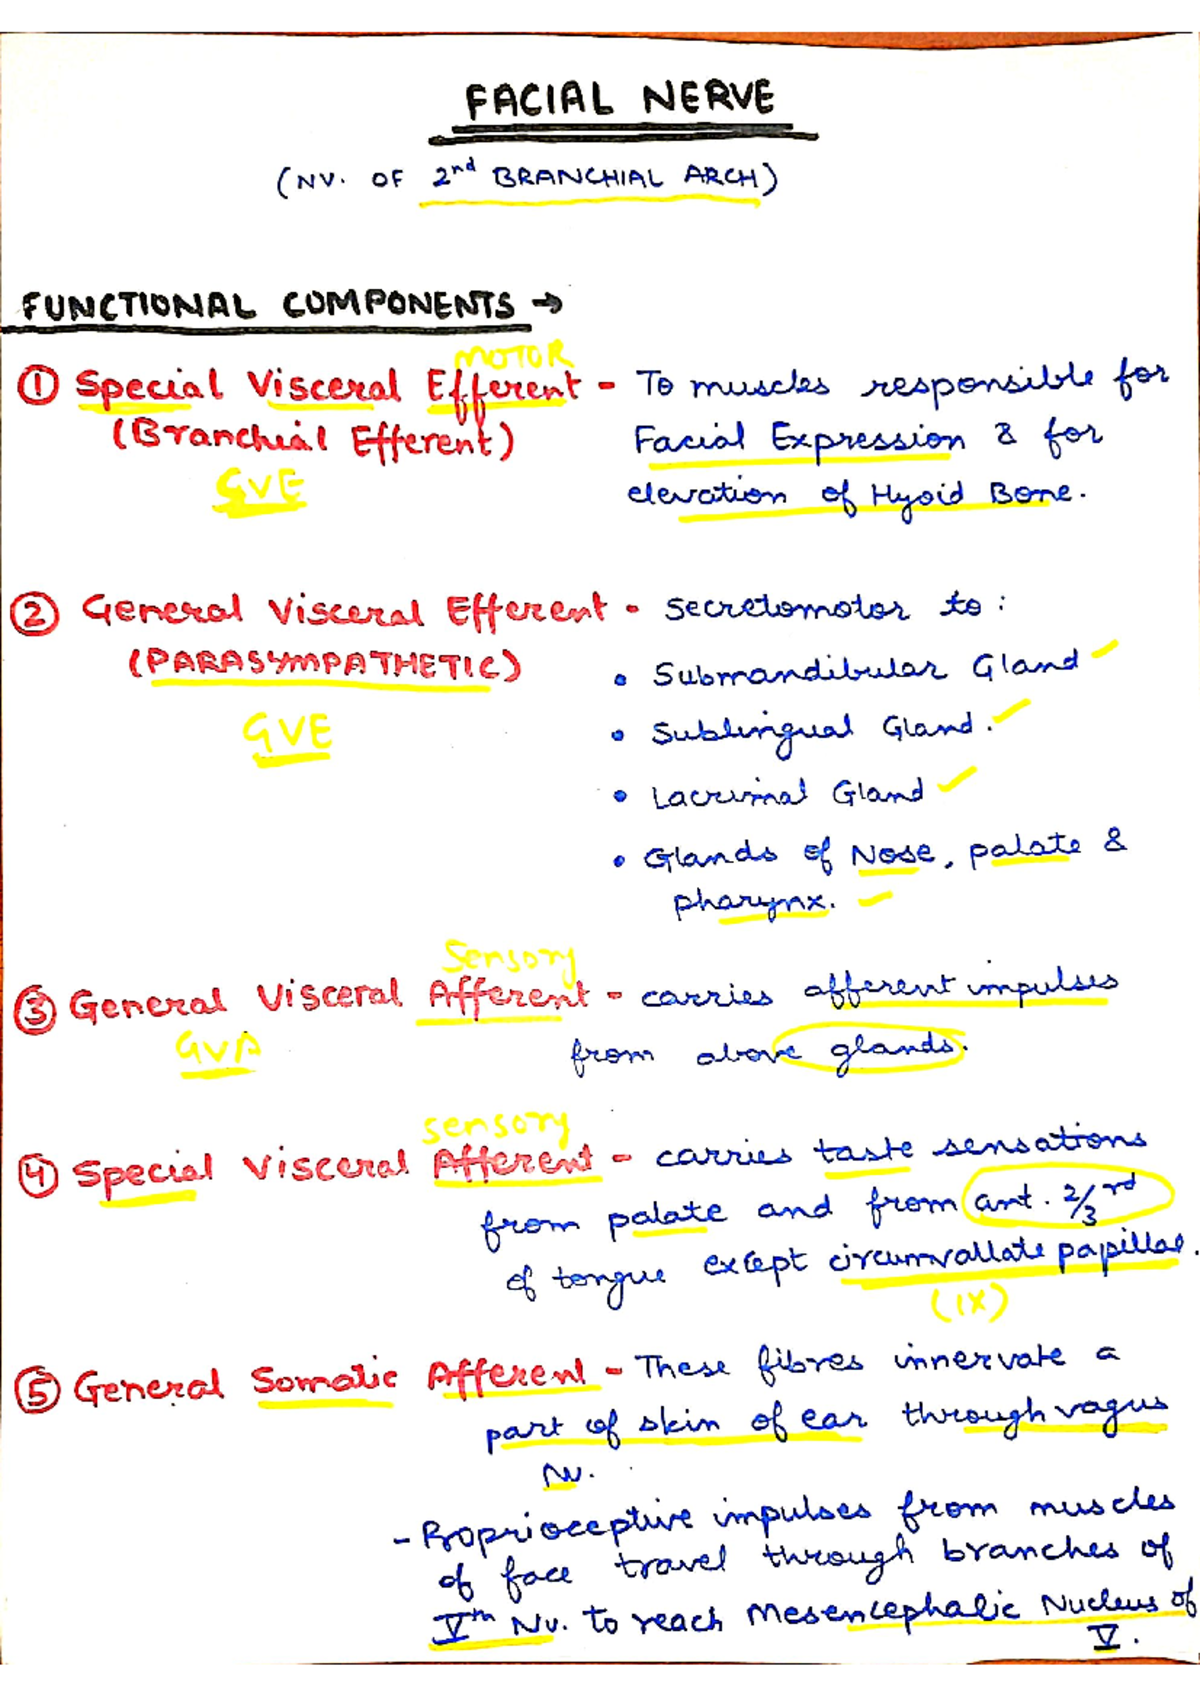 FACIAL NERVE
(NV. OF 2nd BRANCHIAL ARCH)
FUNCTIONAL COMPONENTS →
MOTOR
① Special Visceral Efferent - To muscles responsible for
(Branchial Efferent) Facial Expression & for
GVE elevation of Hyoid Bone.
② General Visceral Efferent - Secretomotor to :
(PARASYMPATHETIC) • Submandibular Gland ✓
GVE • Sublingual Gland. ✓
• Lacrimal Gland ✓
• Glands of Nose, palate &
pharynx. ✓
Sensory
③ General Visceral Afferent - carries afferent impulses
GVA from above glands.
sensory
④ Special Visceral Afferent - carries taste sensations
from palate and from ant. 2/3rd
of tongue except circumvallate papillae.
(IX)
⑤ General Somatic Afferent - These fibres innervate a
part of skin of ear through vagus
Nv.
- Proprioceptive impulses from muscles
of face travel through branches of
Vth Nv. to reach Mesencephalic Nucleus of
V.